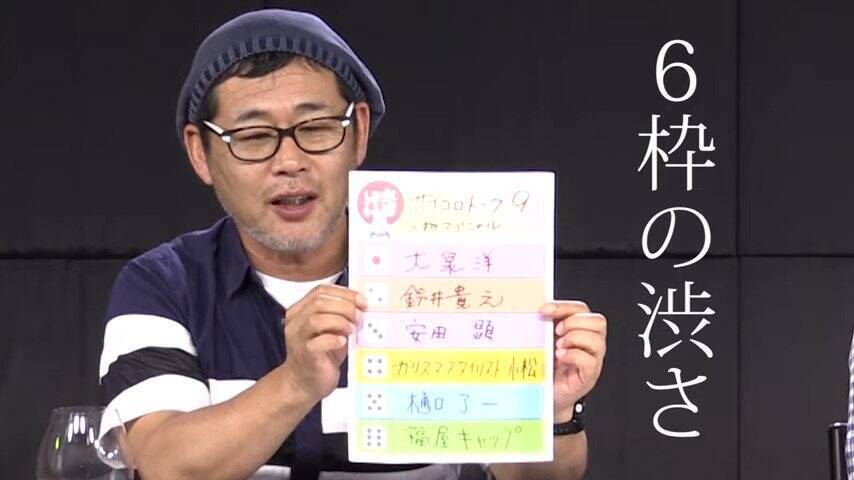 サイコロトーク9
人物スペシャル
大泉洋
鈴井貴之
安田顕
カリスマスタイリスト小松
樋口了一
福屋キャップ
6枠の渋さ